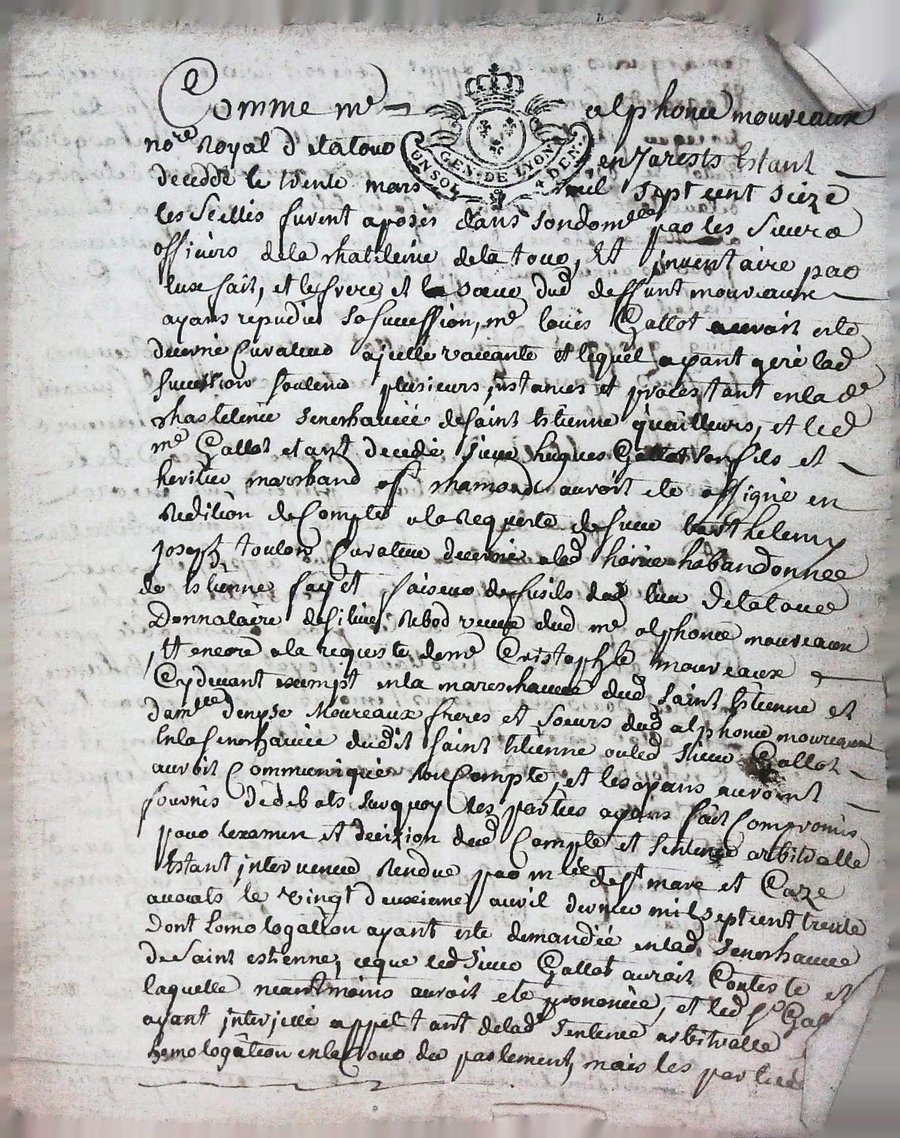 Comme m.e alphonce mouveaux
no.re Royal d'elatour en Jarests Estant
decedde le trente mars mil sept cent sieze
les seellés furent aposés dans son domille par les sieurs
officiers de la chatileine de la tour, Et inventaire par
luxe fait, et les freres et la soeur dud deffunt mouveaux
ayans repudié sa succession, m.e louis Gallot auroit esté
decerné Curateur a jcelle vaccante et lequel ayant geré lad
succession soutenu plusieurs jnstances et proces tant en la d.e
chastelenie senechaucée de saint Estienne qu'ailleurs, et led
m.e Gallot etant decedé sieur hugues Gallot son fils et
heritier marchand a st chamond auroit eté assigné en
Reddition de Compte a la Requeste de sieur barthelemy
joseph toulon Curateur decerné a lad hoirie habandonnée
de Estienne fayet faiseur de fusils dud lieu delatour
Donnataire de silvie Rebod veuve dud m.e alphonce mouveaux
Et encore a la requeste de m.e Cristophle mouveaux
Cydevant exempt en la mareschaucée dud saint Estienne et
dam.lle denyse Moureaux freres et soeurs dud alphonce moureaux
En la senechaucée dudit saint Estienne ou led sieur Gallot
auroit Communiqué son Compte, et les oyans auroint
fournis dedebats surquoy les parties ayans fait Compromis
pour l'examen et decizion dud Compte et sentence arbitralle
Estant jntervenue Rendue par m.e dest mare et Caze
avocats le vingt deuxieme avril dernier mil sept cent trente
Dont lomologation ayant esté demandée en lad senechaucée
de saint estienne, ce que led sieur Gallot auroit Contesté et
laquelle neantmoins auroit eté prononcée, et led s.r Gal
ayant jnterjetté appel tant de lad sentence arbitralle
homologation en la Cour du parlement, mais les parties
GEN. DE LYON